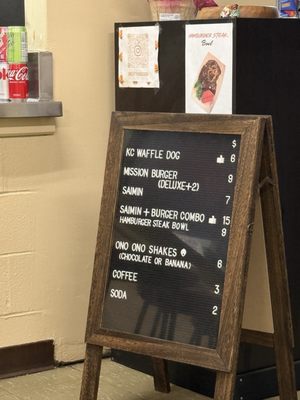 HAMBURGER STEAK
Bowl
Coca-Cola
$
KC WAFFLE DOG 👍 6
MISSION BURGER 9
(DELUXE+2)
SAIMIN 7
SAIMIN + BURGER COMBO 👍 15
HAMBURGER STEAK BOWL 9
ONO ONO SHAKES 6
(CHOCOLATE OR BANANA)
COFFEE 3
SODA 2